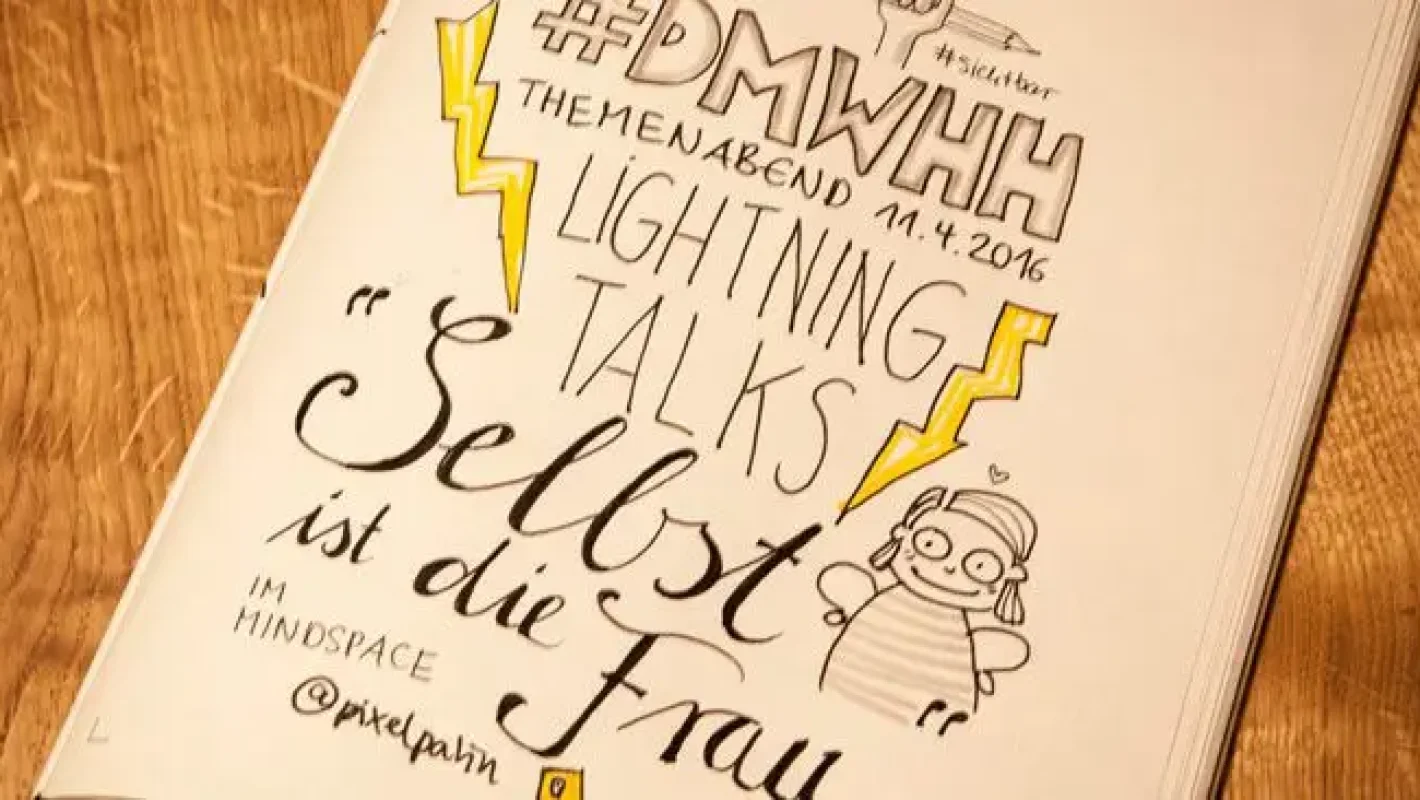 #sichtbar
#DMWHH
THEMENABEND 11.4.2016
LIGHTNING
TALKS
"Selbst
ist die
Frau"
IM
MINDSPACE
@pixelpahn